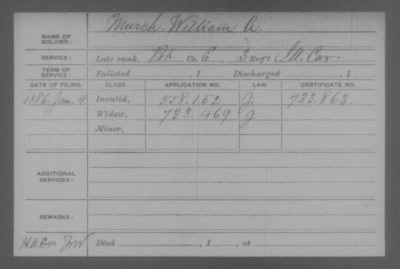 NAME OF SOLDIER: Murch, William A.
SERVICE: Late rank, Pvt Co. E, 3 Reg't Ia. Cav
TERM OF SERVICE: Enlisted , 1 Discharged , 1
DATE OF FILING. CLASS. APPLICATION NO. LAW. CERTIFICATE NO.
1886 Jan. 4 Invalid, 558.152 J. 733.863
Widow, 733.469 J
Minor,
ADDITIONAL SERVICES:
REMARKS:
Died , 1 , at